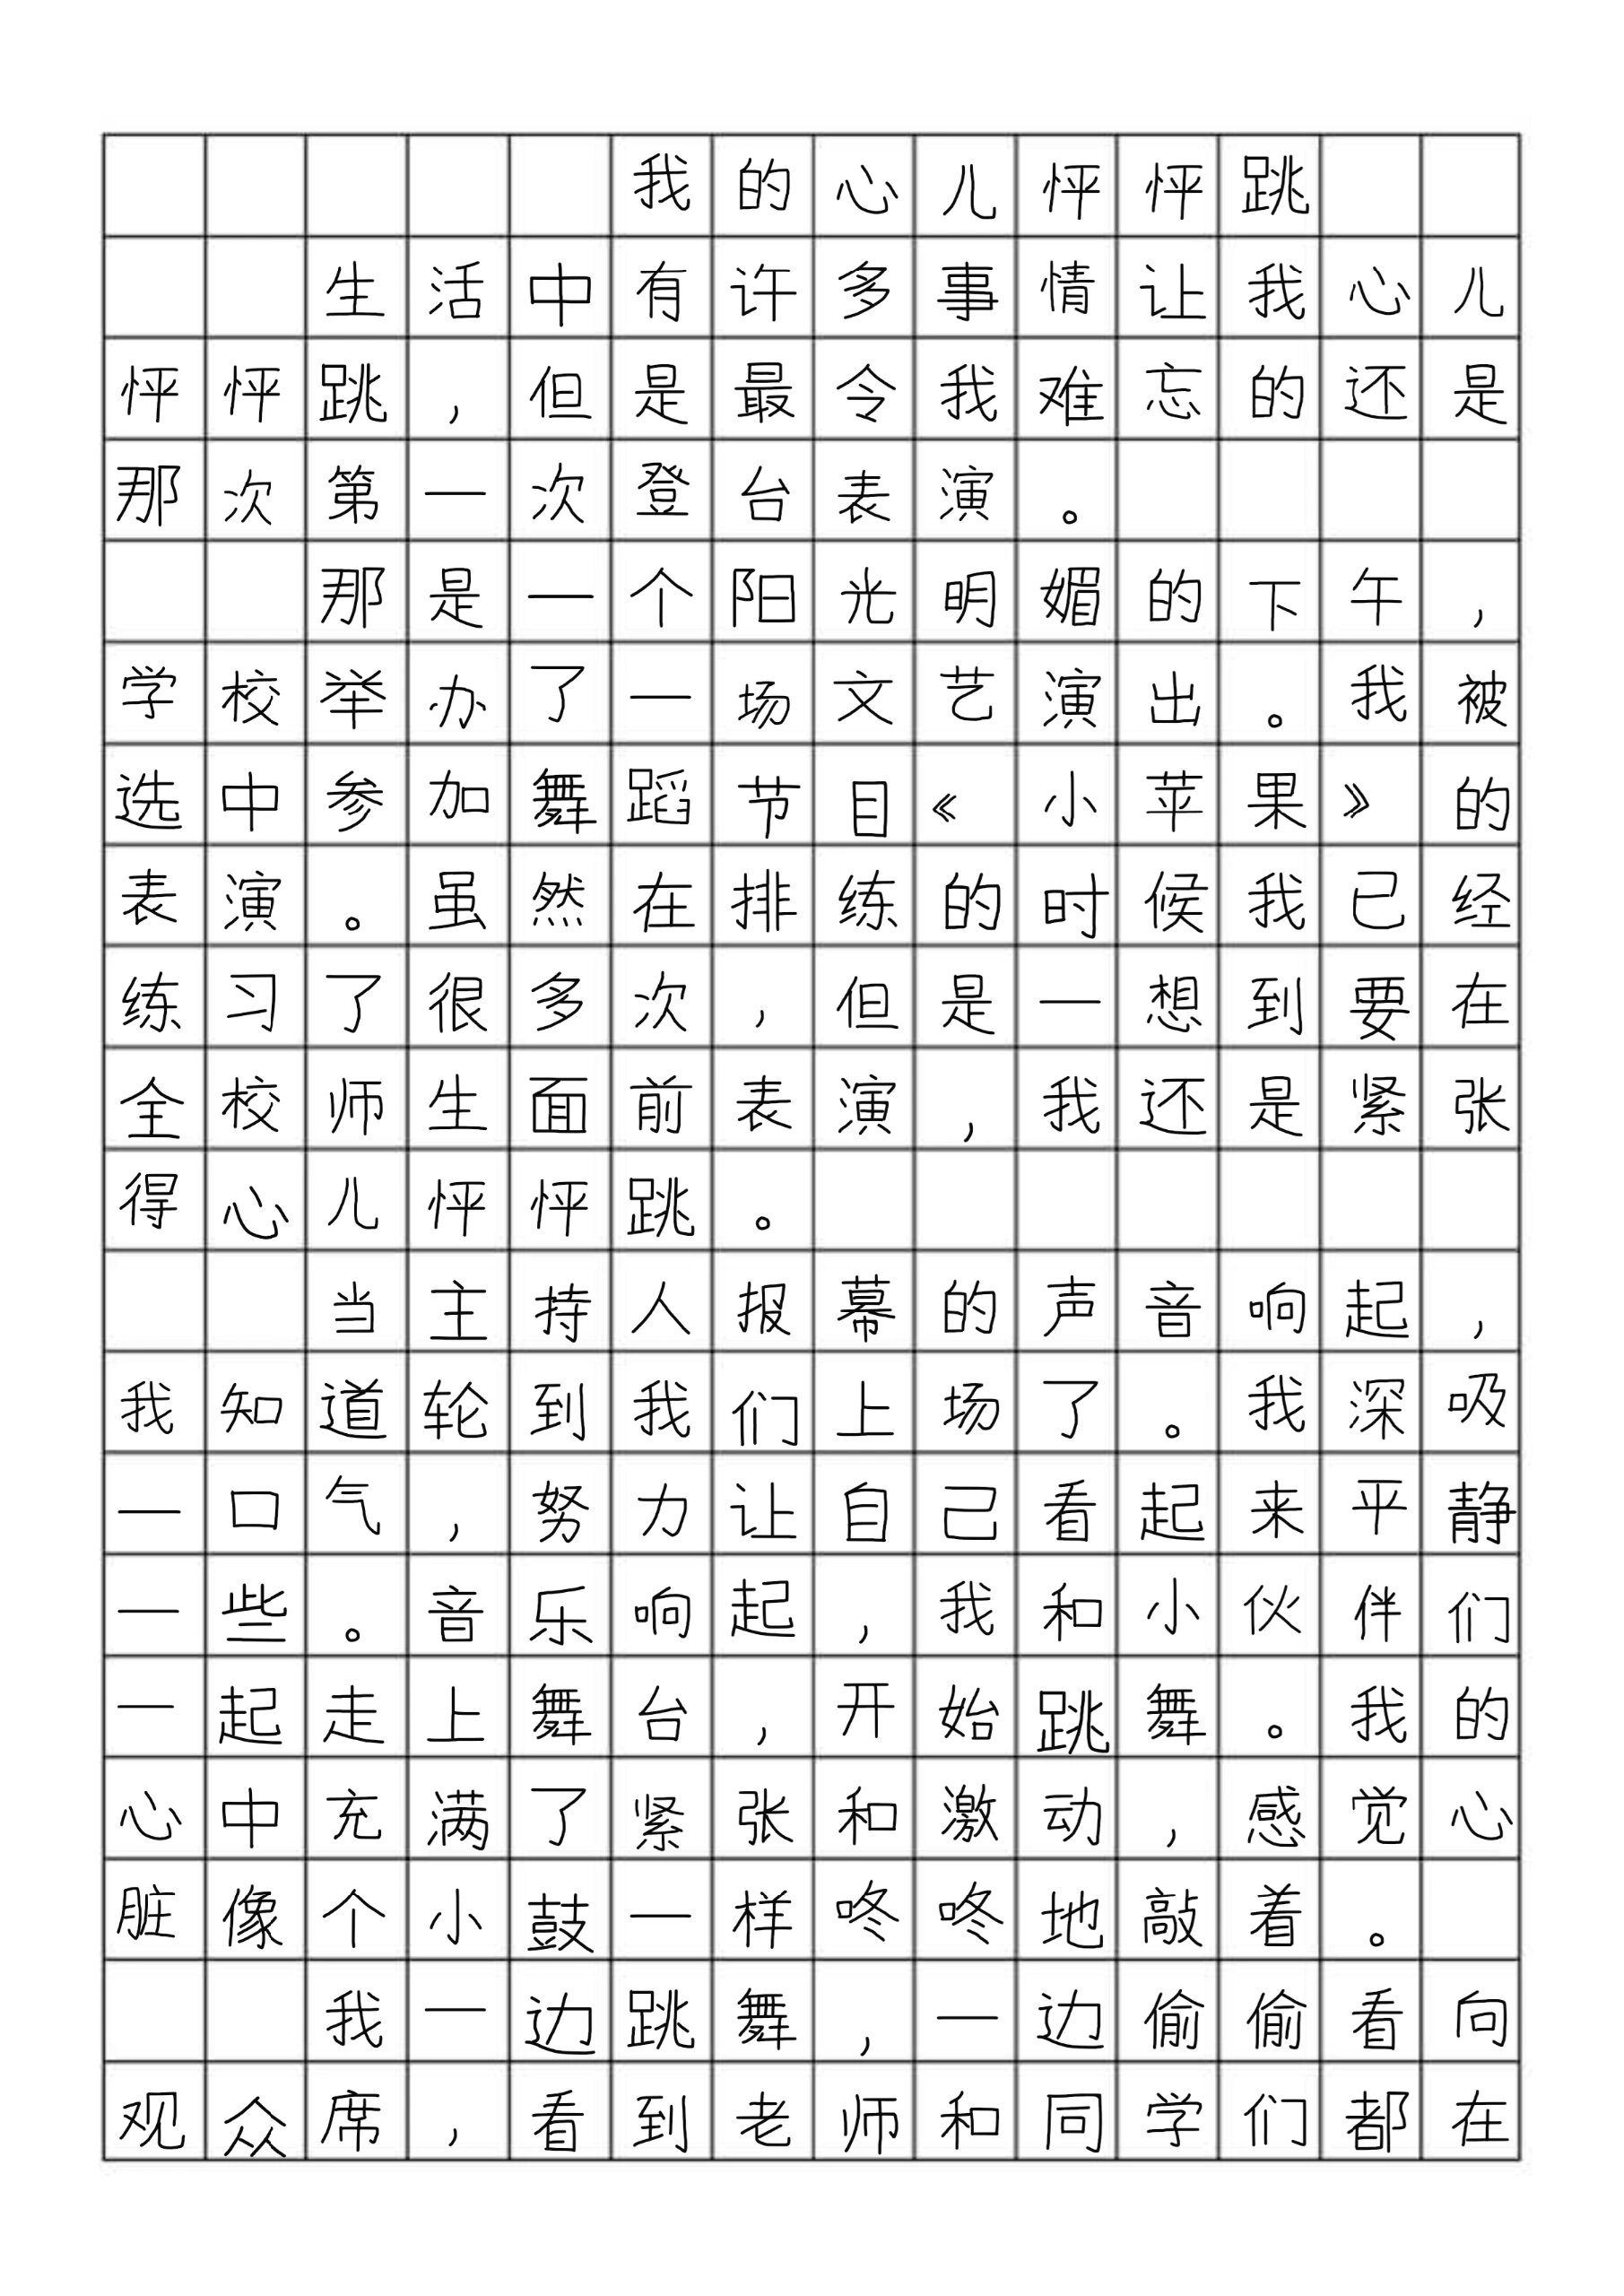 我的心儿怦怦跳
生活中有许多事情让我心儿
怦怦跳，但是最令我难忘的还是
那次第一次登台表演。
那是一个阳光明媚的下午，
学校举办了一场文艺演出。我被
选中参加舞蹈节目《小苹果》的
表演。虽然在排练的时候我已经
练习了很多次，但是一想到要在
全校师生面前表演，我还是紧张
得心儿怦怦跳。
当主持人报幕的声音响起，
我知道轮到我们上场了。我深吸
一口气，努力让自己看起来平静
一些。音乐响起，我和小伙伴们
一起走上舞台，开始跳舞。我的
心中充满了紧张和激动，感觉心
脏像个小鼓一样咚咚地敲着。
我一边跳舞，一边偷偷看向
观众席，看到老师和同学们都在